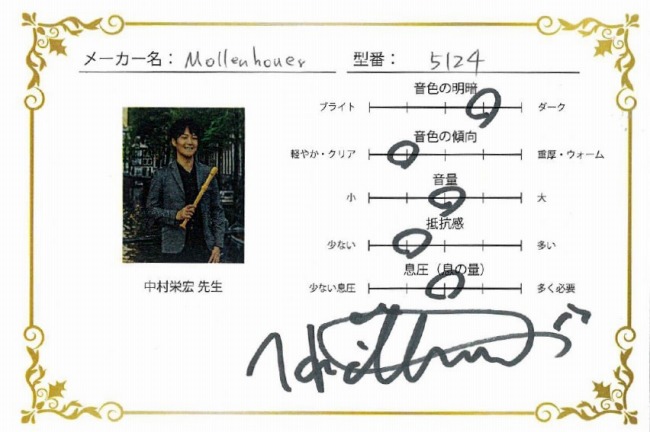 メーカー名： Mollenhouer 型番： 5124
音色の明暗
ブライト ダーク
音色の傾向
軽やか・クリア 重厚・ウォーム
音量
小 大
抵抗感
少ない 多い
息圧（息の量）
少ない息圧 多く必要
中村栄宏 先生